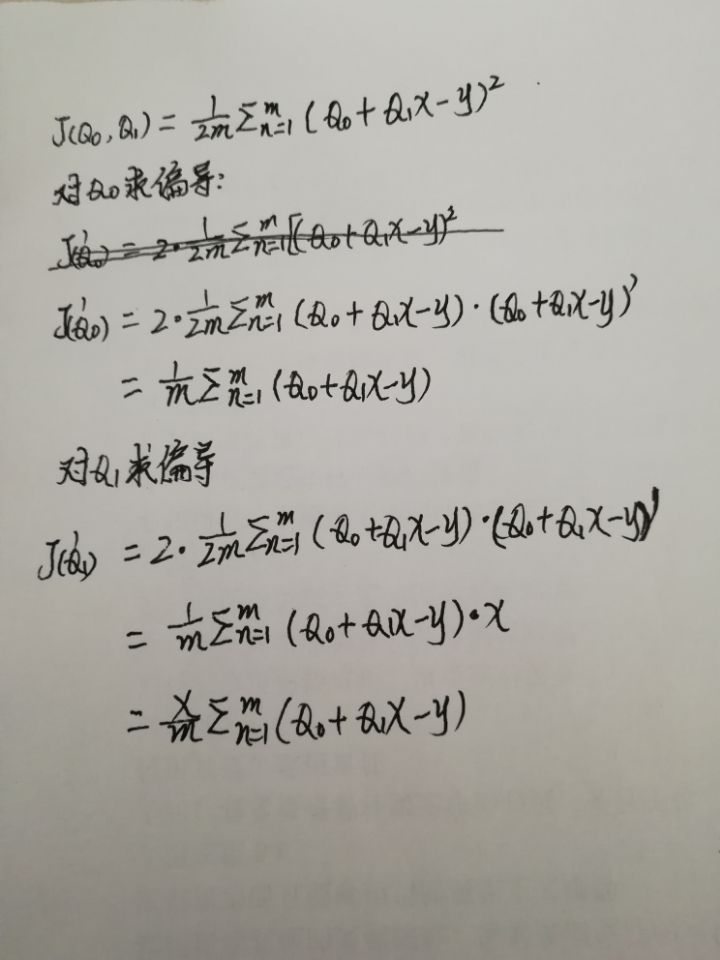 J(Q₀,Q₁) = 1/2m Σⁿ₌₁ᵐ (Q₀+Q₁x-y)²
对Q₀求偏导:
J'(Q₀) = 2·1/2m Σⁿ₌₁ᵐ [(Q₀+Q₁x-y)²
J'(Q₀) = 2·1/2m Σⁿ₌₁ᵐ (Q₀+Q₁x-y)·(Q₀+Q₁x-y)'
= 1/m Σⁿ₌₁ᵐ (Q₀+Q₁x-y)
对Q₁求偏导
J'(Q₁) = 2·1/2m Σⁿ₌₁ᵐ (Q₀+Q₁x-y)·(Q₀+Q₁x-y)'
= 1/m Σⁿ₌₁ᵐ (Q₀+Q₁x-y)·x
= x/m Σⁿ₌₁ᵐ (Q₀+Q₁x-y)